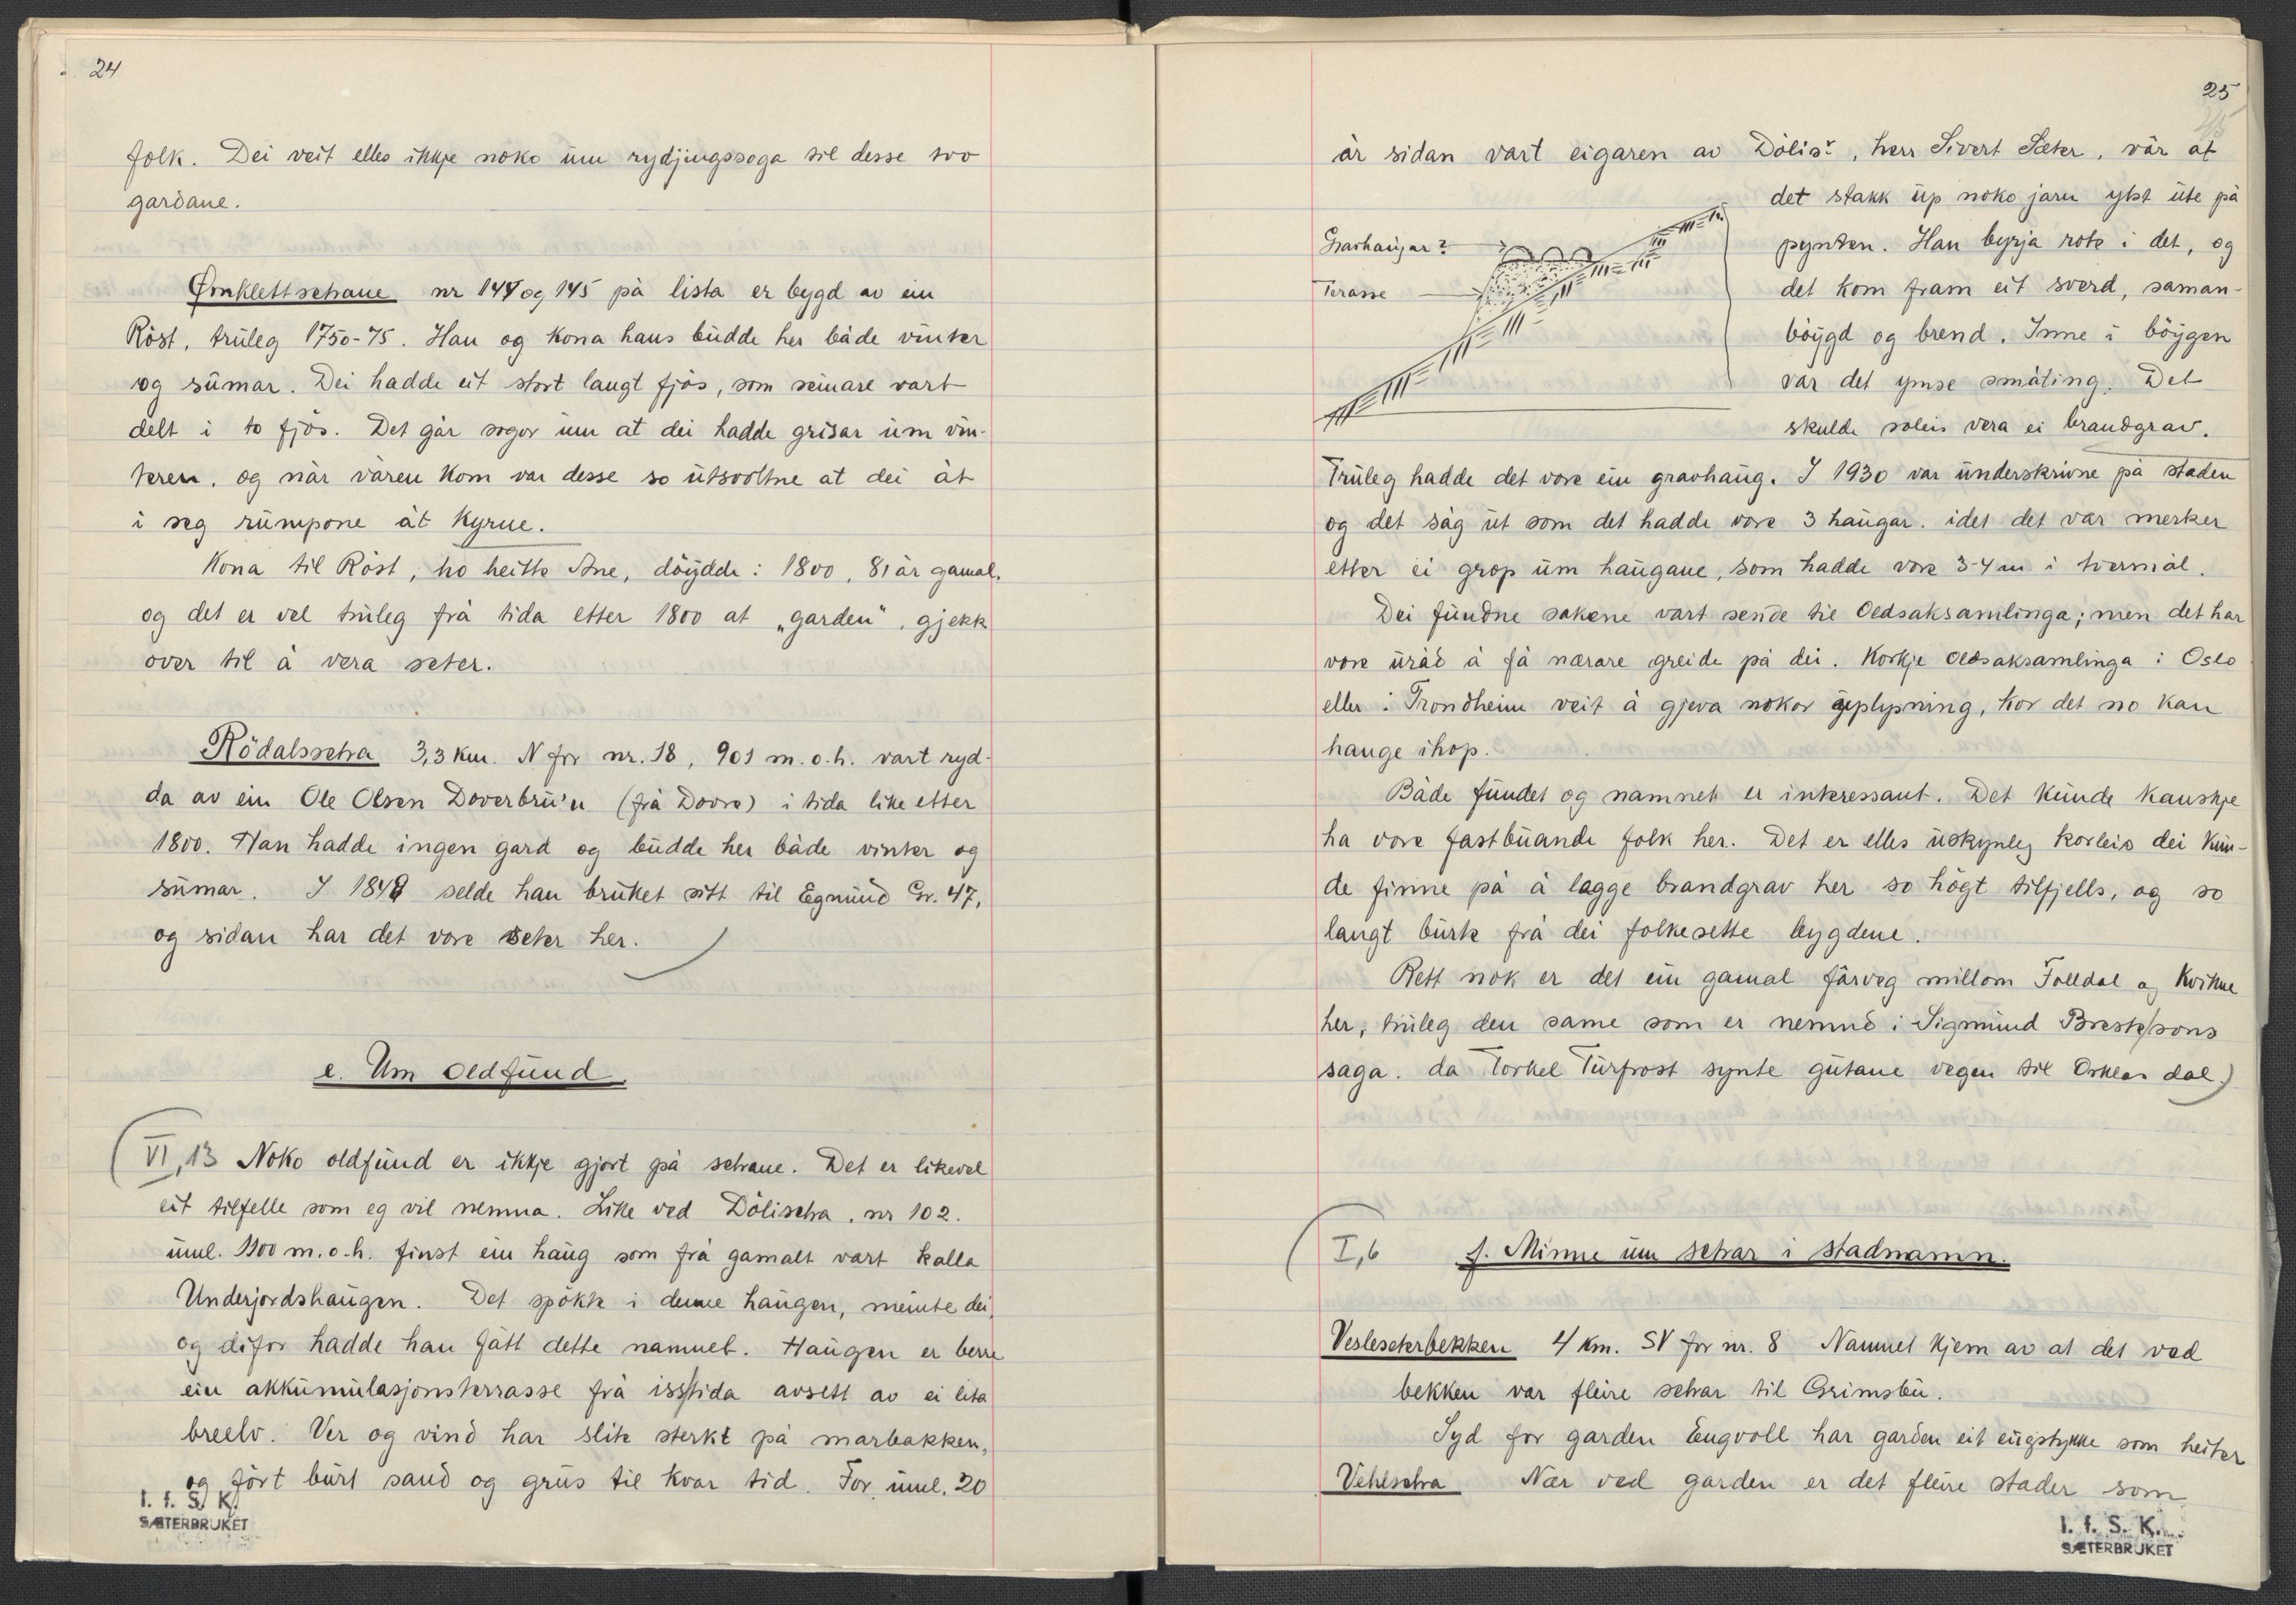 24
folk. Dei veit elles ikkje noko um rydjingssoga til desse tvo
gardane.
Ørnklettsetrane nr 144 og 145 på lista er bygd av ein
Röst, truleg 1750-75. Han og kona hans budde her både vinter
og sumar. Dei hadde eit stort langt fjös, som seinare vart
delt i to fjös. Det går sogor um at dei hadde grisar um vin-
teren, og når våren kom var desse so utsvoltne at dei åt
i seg rumpone åt kyrne.
Kona til Röst, ho heitte Ane, döydde i 1800, 81 år gamal,
og det er vel truleg frå tida etter 1800 at „garden", gjekk
over til å vera seter.
Rödalssetra 3,3 km. N for nr. 18, 901 m.o.h. vart ryd-
da av ein Ole Olsen Doverbru'n (frå Dovre) i tida like etter
1800. Han hadde ingen gard og budde her både vinter og
sumar. I 1848 selde han bruket sitt til Egnund Gr. 47,
og sidan har det vore seter her.
e. Um oldfund.
VI,13 Noko oldfund er ikkje gjort på setrane. Det er likevel
eit tilfelle som eg vil nemna. Like ved Dölisetra, nr 102.
uml. 1100 m.o.h. finst ein haug som frå gamalt vart kalla
Underjordshaugen. Det spökte i denne haugen, meinte dei,
og difor hadde han fått dette namnet. Haugen er berre
ein akkumulasjonsterrasse frå isstida avsett av ei lita
breelv. Ver og vind har slite sterkt på marbakken,
og fört burt sand og grus til kvar tid. For uml. 20
I. f. S. K.
SÆTERBRUKET
25
år sidan vart eigaren av Dölisr, herr Sivert Sæter, var at
det stakk up noko jarn ytst ute på
Gravhaugar?
pynten. Han byrja rote i det, og
Terasse
det kom fram eit sverd, saman-
böygd og brend. Inne i böygen
var det ymse småting. Det
skulde soleis vera ei brandgrav.
Truleg hadde det vore ein gravhaug. I 1930 var underskrivne på staden
og det såg ut som det hadde vore 3 haugar. idet det var merker
etter ei grop um haugane, som hadde vore 3-4 m i tvermål.
Dei fundne sakene vart sende til Oldsaksamlinga; men det har
vore uråd å få nærare greide på dei. Korkje oldsaksamlinga i Oslo
eller i Trondheim veit å gjeva nokor uplysning, kor det no kan
hange ihop.
Både fundet og namnet er interessant. Det kunde kanskje
ha vore fastbuande folk her. Det er elles uskynleg korleis dei kun-
de finne på å lagge brandgrav her so högt tilfjells, og so
langt burte frå dei folkesette bygdene.
Rett nok er det ein gamal farveg millom Folldal og Kvikne
her, truleg den same som er nemnd i Sigmund Brestessons
saga. da Torkel Turfrost synte gutane vegen til Orkles dal.)
I,6 f. Minne um setrar i stadnamn.
Vesleseterbekken 4 km. SV for nr. 8 Namnet kjem av at det ved
bekken var fleire setrar til Grimsbu.
Syd for garden Engvoll har garden eit engstykke som heiter
Vehlsetra Nær ved garden er det fleire stader som
I. f. S. K.
SÆTERBRUKET